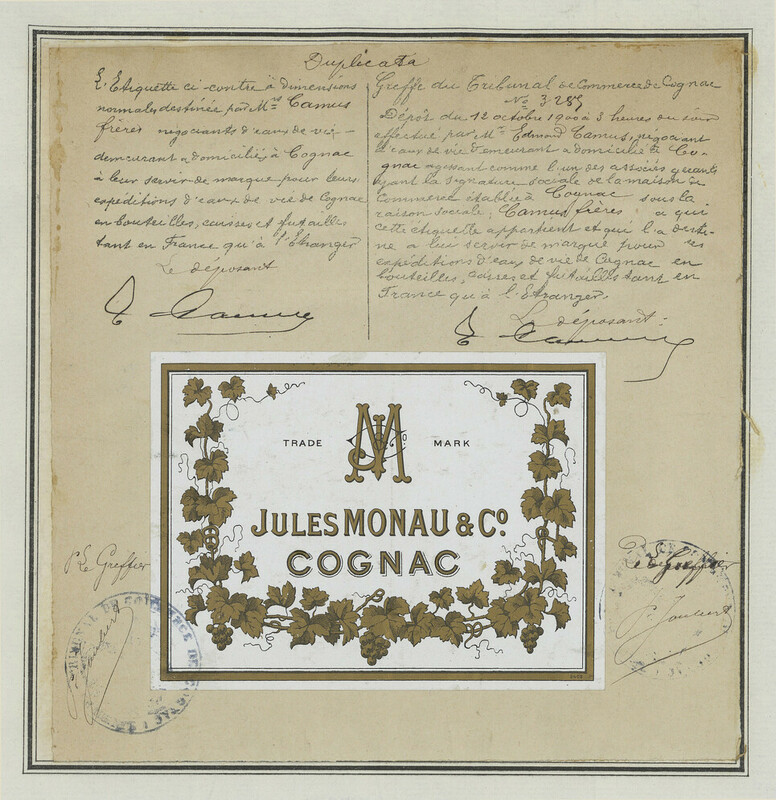 Duplicata
L'Etiquette ci-contre à dimensions
normales destinée par Mrs Camus
frères négociants d'eaux de vie
demeurant & domiciliés à Cognac
à leur servir de marque pour leurs
expéditions d'eaux de vie de Cognac
en bouteilles, caisses et futailles
tant en France qu'à l'Etranger
Le déposant
E Camus
Greffe du Tribunal de Commerce de Cognac
No 3289
Dépôt du 12 octobre 1900 à 3 heures du soir
effectué par Mr Edmond Camus, négociant
d'eaux de vie demeurant & domicilié à Co-
gnac agissant comme l'un des associés gérants
ayant la signature sociale de la maison de
Commerce établie à Cognac sous la
raison sociale: Camus frères à qui
cette étiquette appartient et qui l'a desti-
né a lui servir de marque pour ses
expéditions d'eaux de vie de Cognac en
bouteilles, caisses et futailles tant en
France qu'à l'Etranger.
Le déposant:
E Camus
TRADE MARK
JM & Co.
JULES MONAU & Co.
COGNAC
P. Le Greffier
TRIBUNAL DE COMMERCE DE COGNAC
P. Joubert
P. Le Greffier
P. Joubert